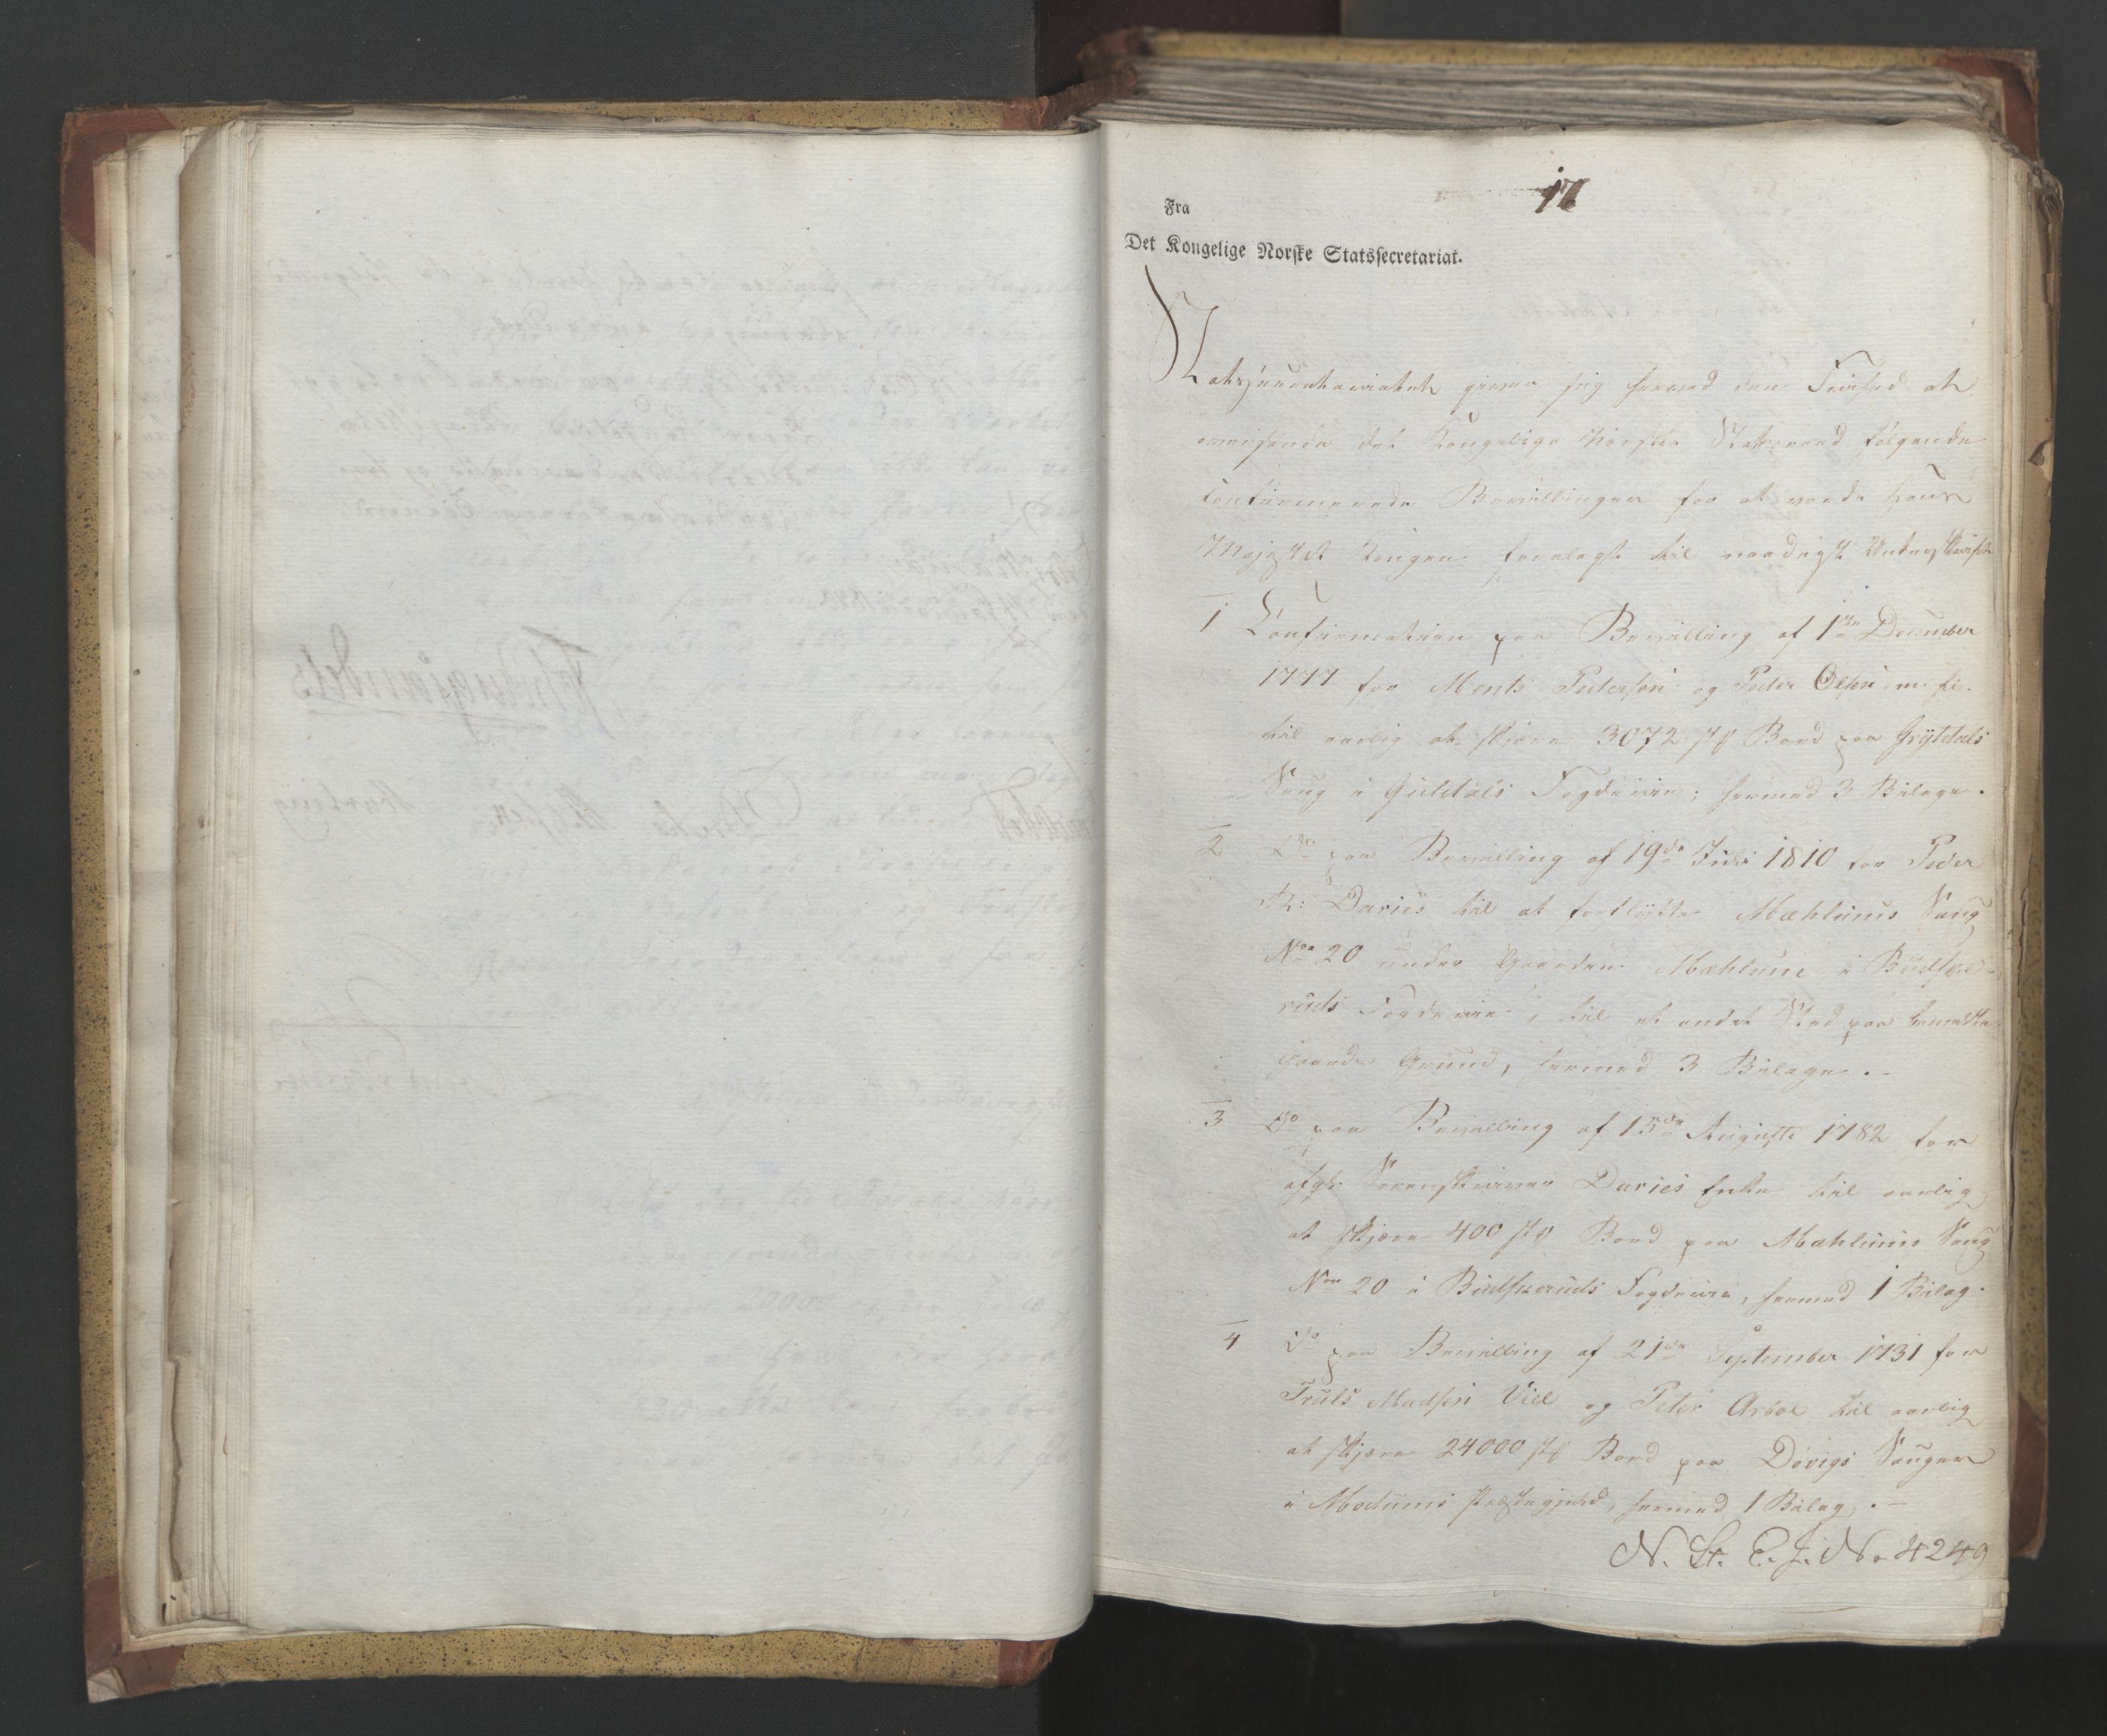 17
Fra
Det Kongelige Norske Statssecretariat.
Statssecretariatet giver sig herved den Friehed at
oversende det Kongelige Norske Statsraad følgende
Confirmerede Bevillinger for at vorde Hans
Majestæt Kongen forelagt til naadigst Underskrivt
1 Confirmation paa Bevilling af 1ste December
1777 for Ments Pedersen og Peder Olsen m. fl.
til aarlig at skjære 3072 st Bord paa Grytdals
Saug i Guldals Fogderie; hermed 3 Bilage.
2 Do paa Bevilling af 19de Juli 1810 for Peder
Daries til at forflytte Mæhlums Saug
Noe 20 under Gaarden Mæhlum i Budske-
ruds Fogderie, til et andet Sted paa bemeldte
Gaards Grund, hermed 3 Bilage.-
3 Do paa Bevilling af 15de Augusti 1782 for
afg: Sorenskriver Daries Enke til aarlig
at skjære 400 st Bord paa Mæhlums Saug
Noe 20 i Budskeruds Fogderie, hermed 1 Bilag.
4 Do paa Bevilling af 21de September 1731 for
Truls Madsen Viel og Peter Arboe til aarlig
at skjære 24000 st Bord paa Døvigs Sauger
i Modums Præstegjeld, hermed 1 Bilag.-
N. St. E. J. No 4249